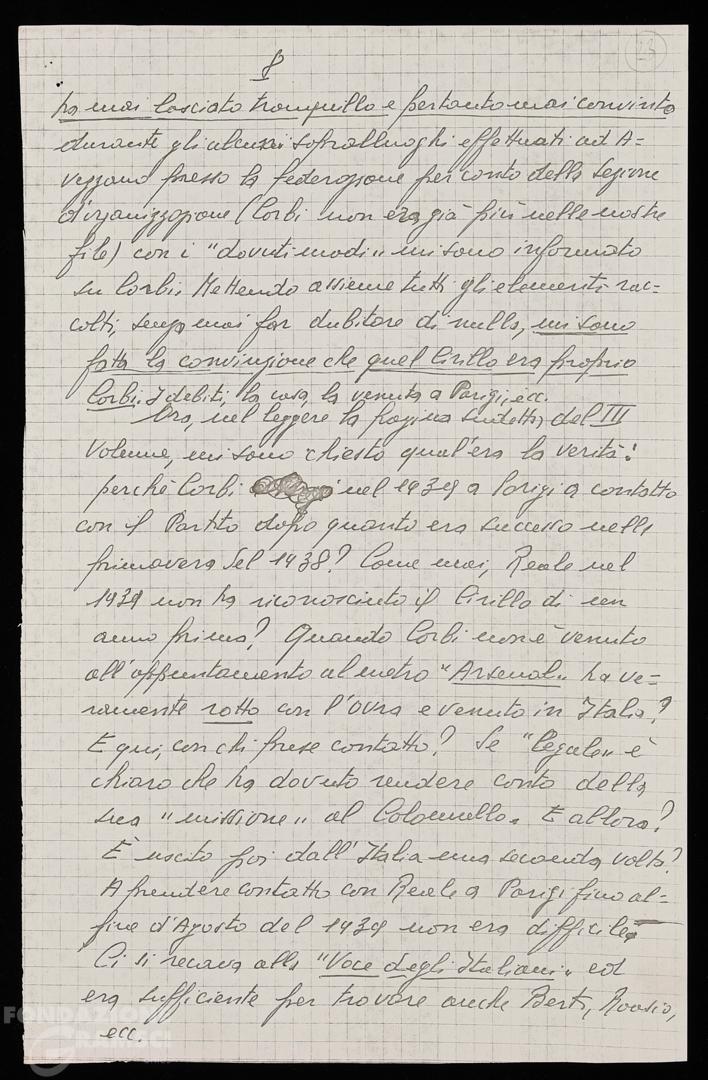 8
13
ha mai lasciato tranquillo e pertanto mai convinto
durante gli alcuni sopralluoghi effettuati ad A=
vezzano presso la Federazione per conto della Sezione
d'organizzazione (Corbi non era già più nelle nostre
file) con i "dovuti modi" mi sono informato
su Corbi. Mettendo assieme tutti gli elementi rac=
colti, senza mai far dubitare di nulla, mi sono
fatta la convinzione che quel Cirillo era proprio
Corbi. I debiti, la casa, la venuta a Parigi, ecc.
Ora, nel leggere la pagina suddetta del III
Volume, mi sono chiesto qual'era la verità:
perché Corbi nel 1939 a Parigi a contatto
con il Partito dopo quanto era successo nella
primavera del 1938? Come mai, Reale nel
1939 non ha riconosciuto il Cirillo di un
anno prima? Quando Corbi non è venuto
all'appuntamento al metro "Arsenal" ha ve=
ramente rotto con l'ovra e venuto in Italia?
E qui, con chi prese contatto? Se "legale" è
chiaro che ha dovuto rendere conto della
sua "missione" al Colonnello. E allora?
È uscito poi dall'Italia una seconda volta?
A prendere contatto con Reale a Parigi fino al=
fine d'Agosto del 1939 non era difficile.
Ci si recava alla "Voce degli Italiani" ed
era sufficiente per trovare anche Berti, Roasio,
ecc.
FONDAZIONE
GRAMSCI